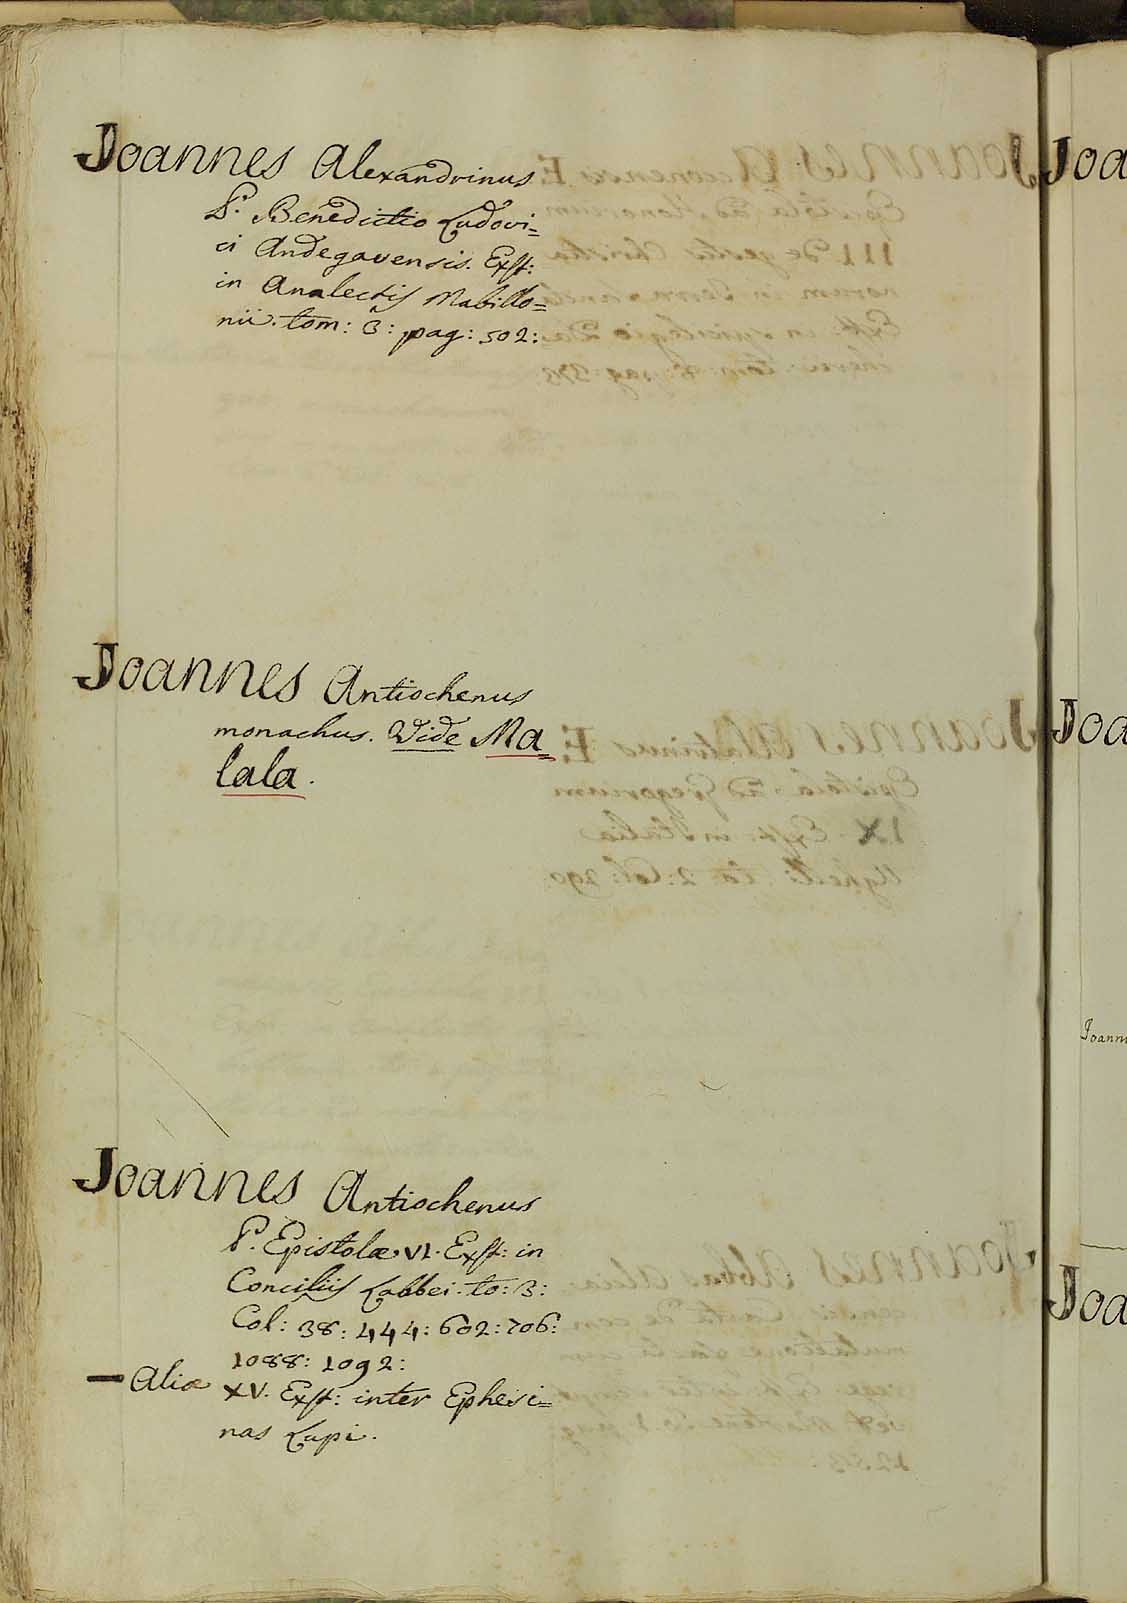 Joannes Alexandrinus
P. Benedictio Ludovi=
ci Andegavensis. Exst:
in Analectis Mabillo=
nii. tom: 3: pag: 502:
Joannes Antiochenus
monachus. Vide Ma=
lala.
Joannes Antiochenus
P. Epistolæ VI. Exst: in
Conciliis Labbei. to: 3:
Col: 38: 444: 602: 706:
1088: 1092:
— Aliæ XV. Exst: inter Ephesi=
nas Lupi.
Joa
Joa
Joann
Joa